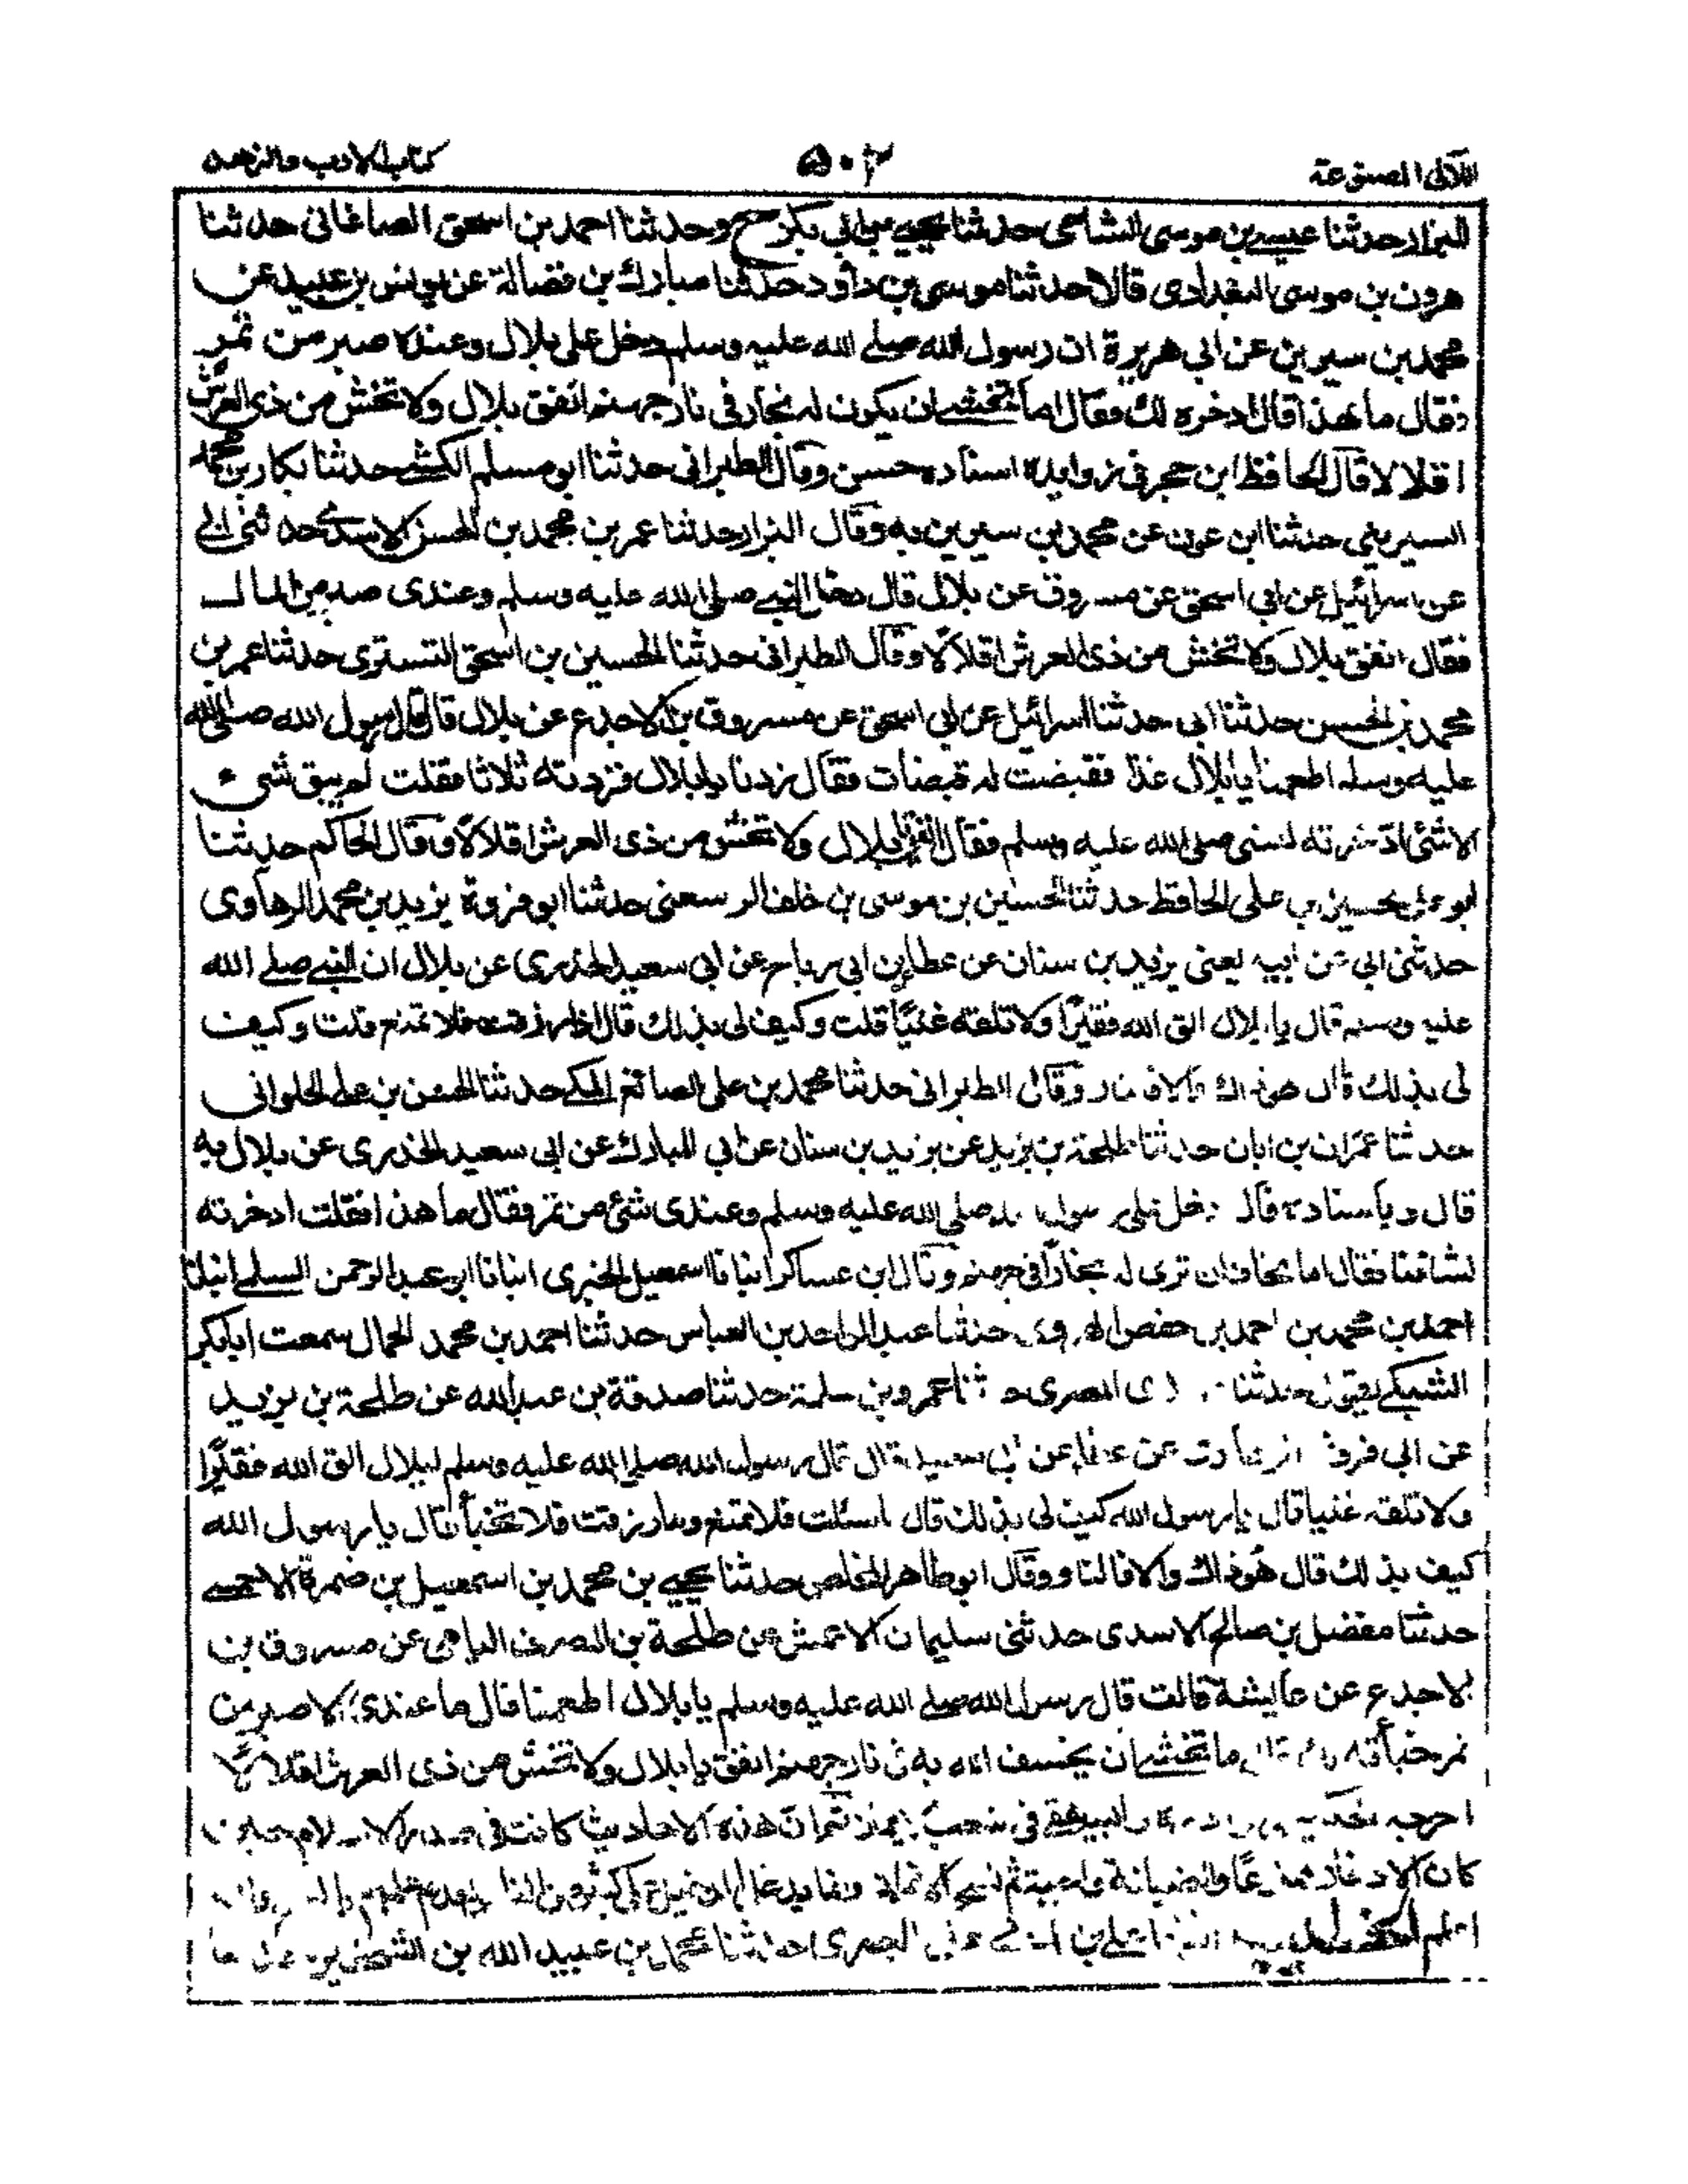 اللآلی المصنوعة
۵۰۲
کتاب الادب والزهد
البزار حدثنا عیسے بن موسی الشامی حدثنا یحیے بن ابی بکر ح وحدثنا احمد بن اسحق الصاغانی حدثنا
هرون بن موسی البغدادی قالا حدثنا موسی بن داود حدثنا مبارك بن فضالة عن یونس بن عبید عن
محمد بن سیرین عن ابی هریرة ان رسول الله صلے الله علیه وسلم دخل علی بلال وعنده صبر من تمر
فقال ما هذا قال ادخره لك فقال اما تخشے ان یکون له بخار فی نار جهنم انفق بلال ولا تخش من ذی العرش
اقلالا قال الحافظ ابن حجر فی زوایده اسناده حسن وقال الطبرانی حدثنا ابو مسلم الکشے حدثنا بکار بن محمد
السیرینی حدثنا ابن عون عن محمد بن سیرین به وقال البزار حدثنا عمر بن محمد بن الحسن الاسدے حدثنی ابی
عن اسرائیل عن ابی اسحق عن مسروق عن بلال قال دخل النبے صلی الله علیه وسلم وعندی صبر من المال
فقال انفق بلال ولا تخش من ذی العرش اقلالا وقال الطبرانی حدثنا الحسین بن اسحق التستری حدثنا عمر بن
محمد بن الحسن حدثنا ابی حدثنا اسرائیل عن ابی اسحق عن مسروق بن الاجدع عن بلال قال قال رسول الله صلی الله
علیه وسلم اطعمنا یا بلال غدا فقبضت له قبضات فقال زدنا یا بلال فزدته ثلاثا فقلت لم یبق شیء
الا شئ ادخرته للنبی صلی الله علیه وسلم فقال انفق بلال ولا تخش من ذی العرش اقلالا وقال الحاکم حدثنا
ابو علی الحسین بن علی الحافظ حدثنا الحسین بن موسی بن خلف الرسعنی حدثنا ابو فروة یزید بن محمد الرهاوی
حدثنی ابی عن ابیه یعنی یزید بن سنان عن عطا بن ابی رباح عن ابی سعید الخدری عن بلال ان النبے صلے الله
علیه وسلم قال یا بلال الق الله فقیرًا ولا تلقه غنیًا قلت وکیف لی بذلك قال اذا رزقت فلا تمنع قلت وکیف
لی بذلك قال هو ذاك والا فالنار وقال الطبرانی حدثنا محمد بن علی الصائغ المکے حدثنا الحسن بن علے الحلوانی
حدثنا عمران بن ابان حدثنا طلحة بن یزید عن یزید بن سنان عن ابی المبارك عن ابی سعید الخدری عن بلال به
قال وباسناده قال دخل علی رسول الله صلی الله علیه وسلم وعندی شئ من تمر فقال ما هذا فقلت ادخرته
لشتائنا فقال اما تخاف ان تری له بخارًا فی جهنم وقال ابن عساکر انبانا اسمعیل الحیری انبانا ابو عبد الرحمن السلمے انبانا
احمد بن محمد بن احمد بن حفص الهروی حدثنا عبد الواحد بن العباس حدثنا احمد بن محمد الحمال سمعت ابابکر
الشبلے یقول حدثنا المصری حدثنا عمرو بن سلمة حدثنا صدقة بن عبد الله عن طلحة بن یزید
عن ابی فروة عن عطاء عن ابی سعید قال قال رسول الله صلی الله علیه وسلم لبلال الق الله فقیرًا
ولا تلقه غنیا قال یا رسول الله کیف لی بذلك قال ما سئلت فلا تمنع وما رزقت فلا تخبأ قال یا رسول الله
کیف بذلك قال هو ذاك والا فالنار وقال ابو طاهر المخلص حدثنا یحیے بن محمد بن اسمعیل بن ضمرة الاحمسے
حدثنا مفضل بن صالح الاسدی حدثنی سلیمان الاعمش عن طلحة بن المصرف الیامی عن مسروق بن
الاجدع عن عایشة قالت قال رسول الله صلے الله علیه وسلم یا بلال اطعمنا قال ما عندی الا صبر من
تمر خبأته ما تخشے ان یخسف الله به فی نار جهنم انفق یا بلال ولا تخش من ذی العرش اقلالا
اخرجه والبیهقے فی شعب ثم ان هذه الاحادیث کانت فی صدر الاسلام حین
کان الادخار ممنوعًا والضیافة واجبة ثم نسخ
اعلم حدثنا محمد بن عبید الله بن الشخیر